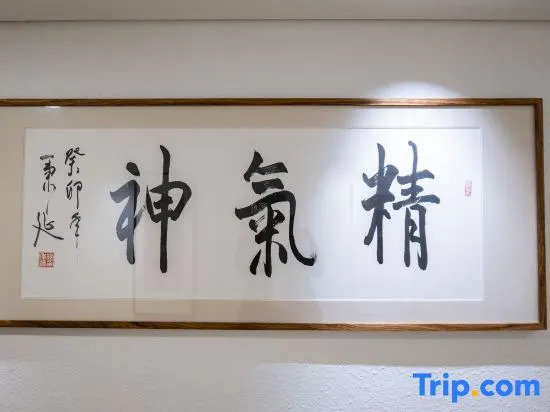 精氣神
癸卯年
Trip.com